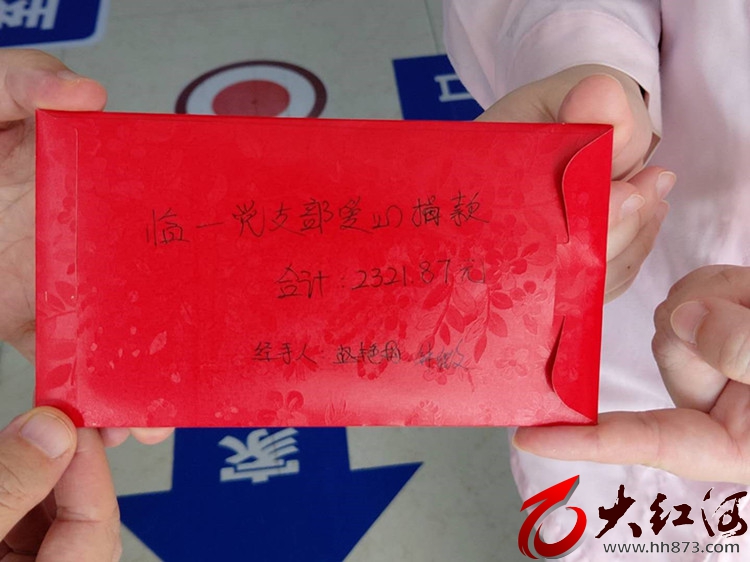 临一党支部爱心捐款
合计：2321.87元
经手人
家
大红河
www.hh873.com